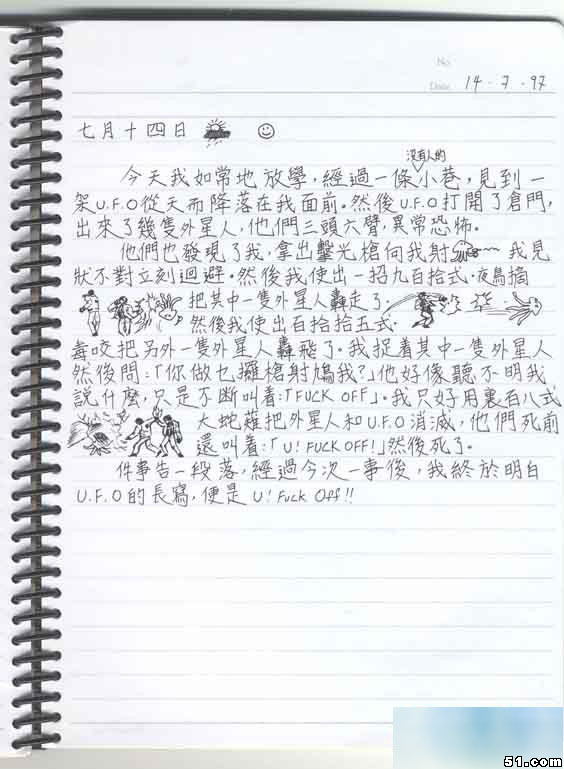 No
Date 14・7・97
七月十四日
沒有人的
今天我如常地放學,經過一條小巷,見到一
架U.F.O從天而降落在我面前。然後U.F.O打開了倉門,
出來了幾隻外星人,他們三頭六臂,異常恐怖。
他們也發現了我,拿出擊光槍向我射 我見
狀不對立刻迴避。然後我使出一招九百拾式·夜鳥摘
把其中一隻外星人轟走了。
然後我使出百拾拾五式·
毒咬把另外一隻外星人轟飛了。我捉着其中一隻外星人
然後問:「你做乜攞槍射鳩我?」他好像聽不明我
說什麼,只是不斷叫着:「FUCK OFF」。我只好用裏百八式
大蛇薙把外星人和U.F.O消滅,他們死前
還叫着:「U! FUCK OFF!」然後死了。
件事告一段落,經過今次一事後,我終於明白
U.F.O的長寫,便是U! Fuck Off!!
51.com